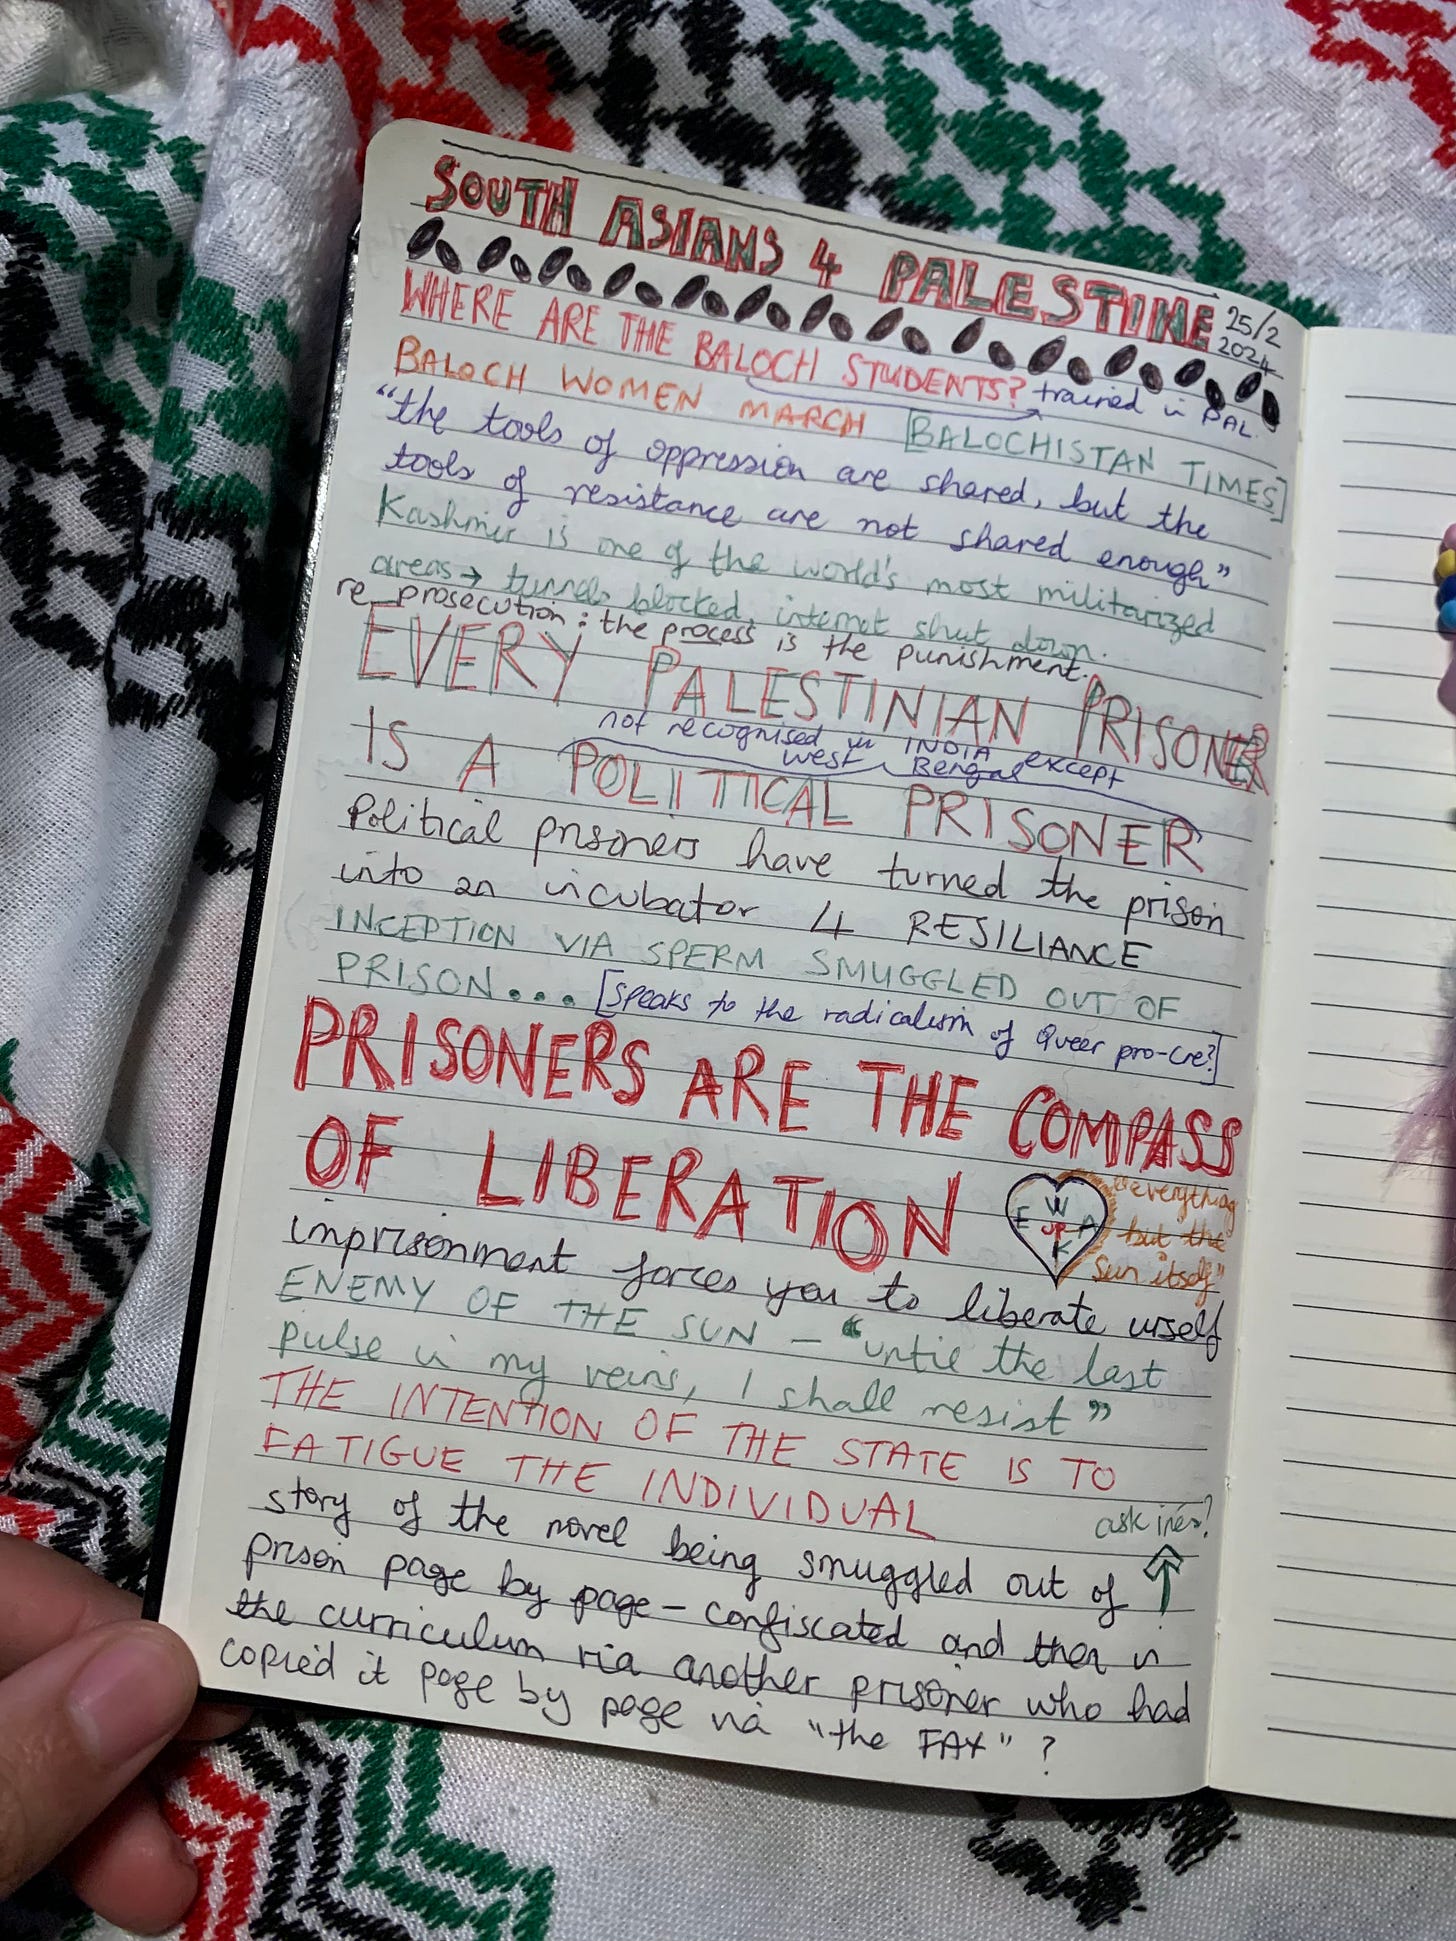 SOUTH ASIANS 4 PALESTINE
25/2
2024
WHERE ARE THE BALOCH STUDENTS? trained in PAL.
BALOCH WOMEN MARCH [BALOCHISTAN TIMES]
"the tools of oppression are shared, but the
tools of resistance are not shared enough"
Kashmir is one of the world's most militarized
areas → tunnels blocked, internet shut down.
re prosecution: the process is the punishment.
EVERY PALESTINIAN PRISONER
not recognised in INDIA except
west Bengal
IS A POLITICAL PRISONER
Political prisoners have turned the prison
into an incubator 4 RESILIANCE
INCEPTION VIA SPERM SMUGGLED OUT OF
PRISON... [speaks to the radicalism of Queer pro-cre?]
PRISONERS ARE THE COMPASS
OF LIBERATION
W
E UP A
K
"everything
but the
Sun itself"
imprisonment forces you to liberate urself
ENEMY OF THE SUN – "until the last
pulse in my veins, I shall resist"
THE INTENTION OF THE STATE IS TO
FATIGUE THE INDIVIDUAL
ask ines?
story of the novel being smuggled out of ↑
prison page by page – confiscated and then in
the curriculum via another prisoner who had
copied it page by page via "the FAX" ?